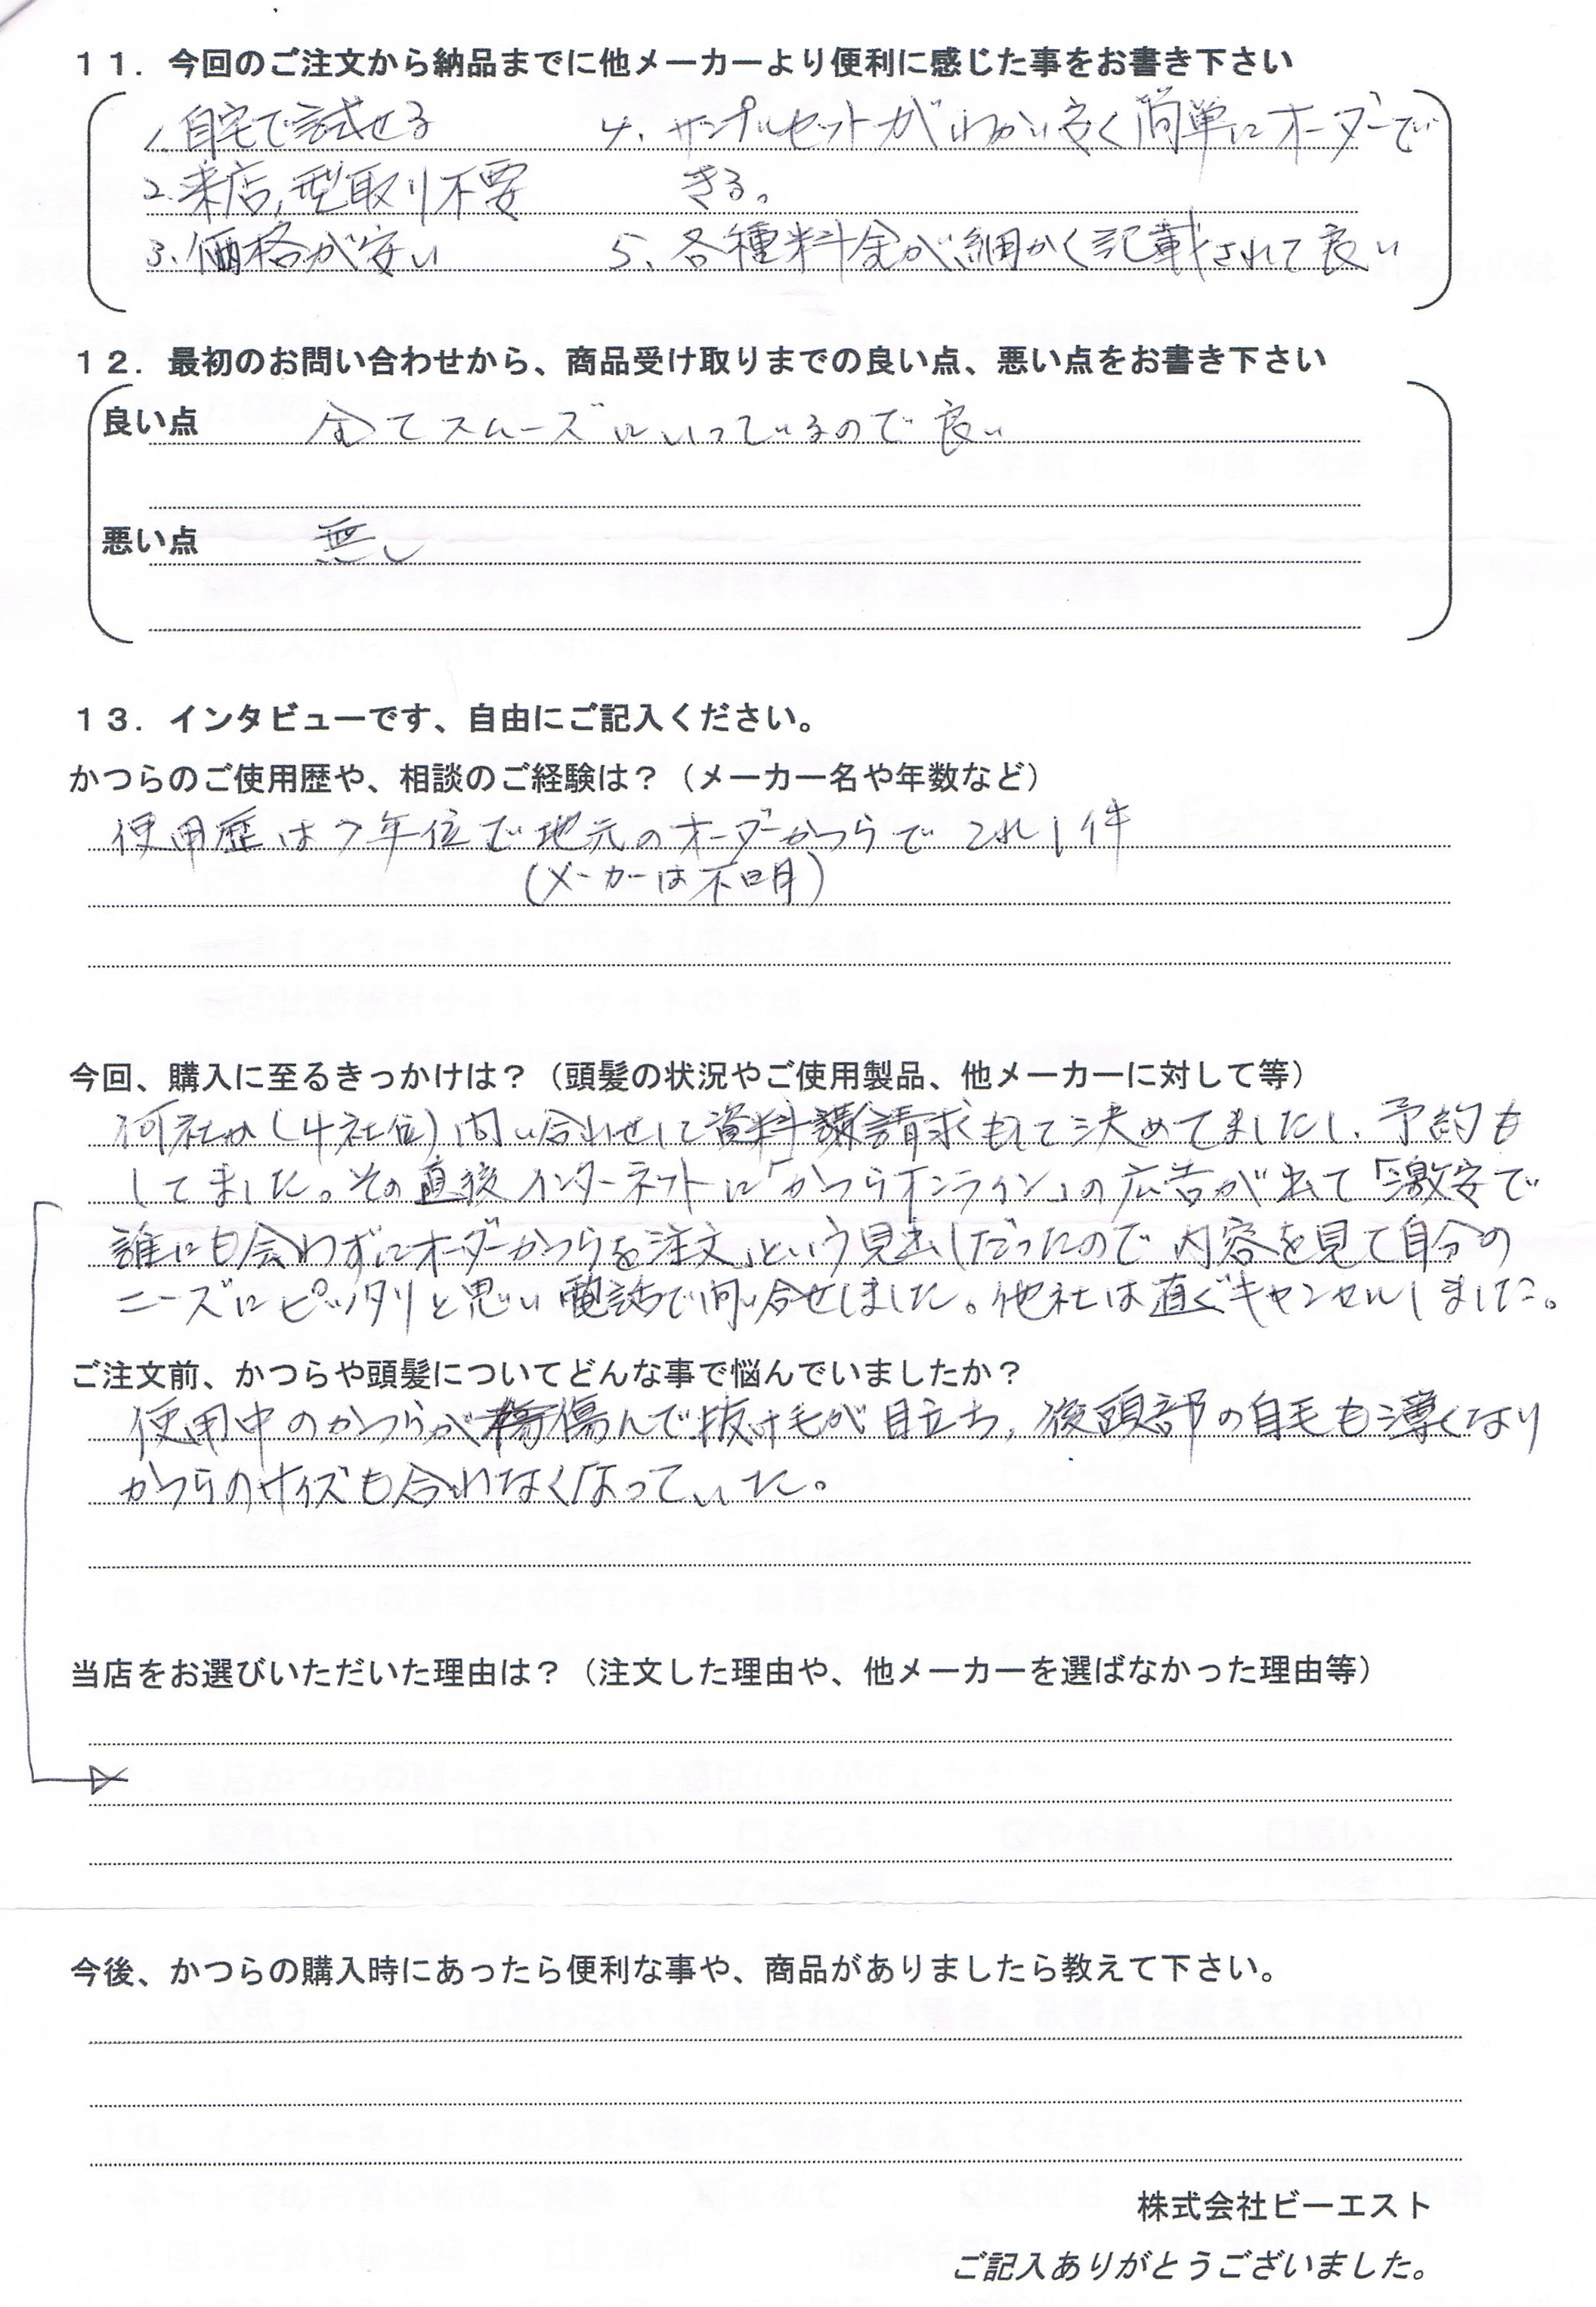 １１．今回のご注文から納品までに他メーカーより便利に感じた事をお書き下さい
1. 自宅で試せる
2. 来店, 型取り不要
3. 価格が安い
4. サンプルセットがわかり安く簡単にオーダーで
きる。
5. 各種料金が細かく記載されて良い
１２．最初のお問い合わせから、商品受け取りまでの良い点、悪い点をお書き下さい
良い点 全てスムーズにいっているので良い
悪い点 無し
１３．インタビューです、自由にご記入ください。
かつらのご使用歴や、相談のご経験は？（メーカー名や年数など）
使用歴は7年位で地元のオーダーかつらでこれ1件
(メーカーは不明)
今回、購入に至るきっかけは？（頭髪の状況やご使用製品、他メーカーに対して等）
何社か(4社位)問い合わせして資料請求もして決めてましたし、予約も
してました。その直後インターネットに「かつらオンライン」の広告が出て「激安で
誰にも会わずにオーダーかつらを注文」という見出しだったので内容を見て自分の
ニーズにピッタリと思い電話で問い合せしました。他社は直ぐキャンセルしました。
ご注文前、かつらや頭髪についてどんな事で悩んでいましたか？
使用中のかつらが傷んで抜け毛が目立ち, 後頭部の自毛も薄くなり
かつらのサイズも合わなくなっていた。
当店をお選びいただいた理由は？（注文した理由や、他メーカーを選ばなかった理由等）
今後、かつらの購入時にあったら便利な事や、商品がありましたら教えて下さい。
株式会社ビーエスト
ご記入ありがとうございました。